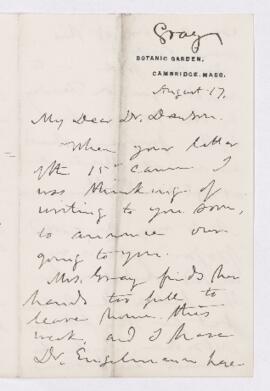 Gray
BOTANIC GARDEN,
CAMBRIDGE, MASS.
August 17.
My Dear Dr. Dawson.
When your letter
of the 15th came I
was thinking of
writing to you soon,
to announce our
going to you.
Mrs. Gray finds her
hands too full to
leave home this
week, and I have
Dr. Engelmann here